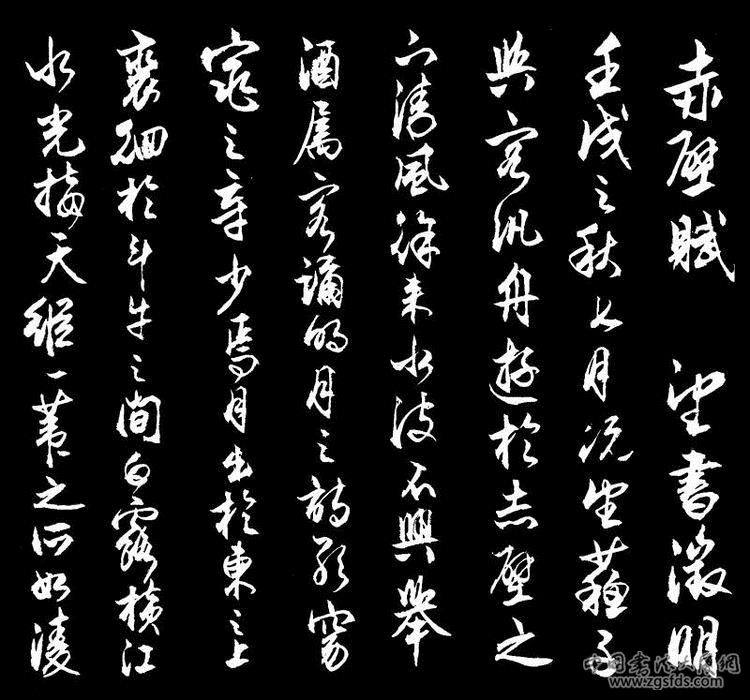 赤壁賦 書徵明
壬戌之秋七月既望蘇子
與客汎舟遊於赤壁之
下清風徐來水波不興舉
酒屬客誦明月之詩歌窈
窕之章少焉月出於東之上
裵徊於斗牛之間白露橫江
水光接天縱一葦之所如凌
中国书法大师网
www.zgsfds.com